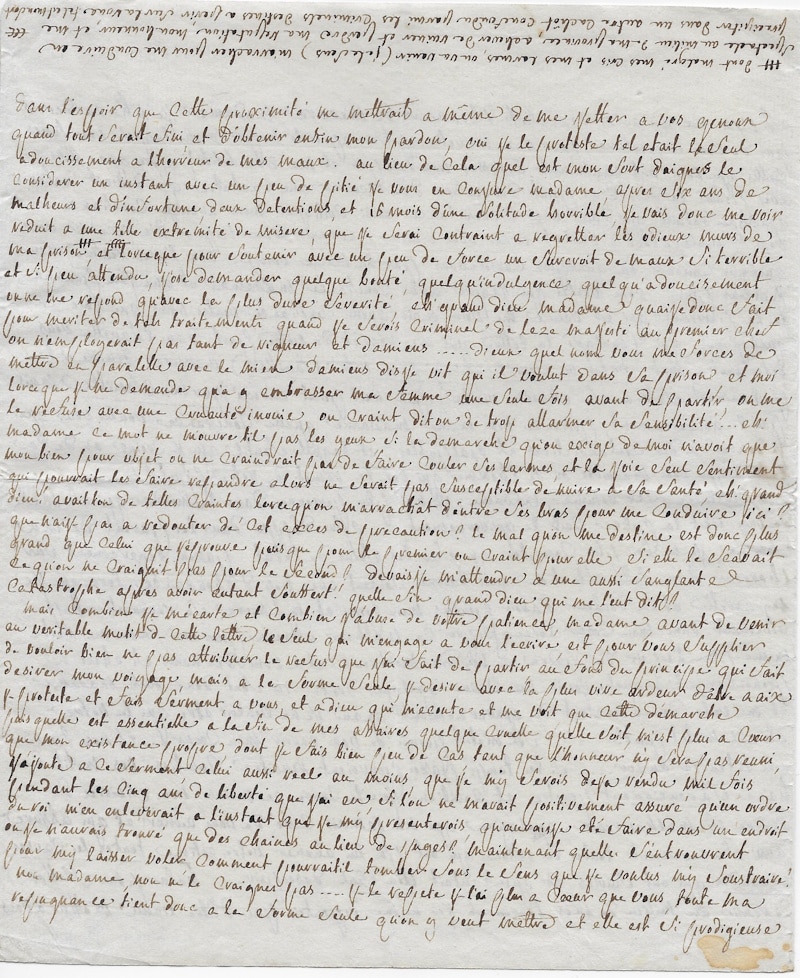 dans l'espoir que cette proximité me mettrait a même de me jetter a vos genoux
quand tout serait fini et d'obtenir enfin mon pardon, oui je le proteste tel etait le seul
adoucissement a l'horreur de mes maux. au lieu de cela quel est mon sort daignes le
considerer un instant avec un peu de pitié je vous en conjure madame, apres six ans de
malheurs et d'infortune deux detentions et 16 mois d'une solitude horrible, je vais donc me voir
reduit a une telle extremité de misere, que je serai contraint a regretter les odieux murs de
ma prison, et lorceque pour soutenir avec un peu de force un surcroit de maux si terrible
et si peu attendu, j'ose demander quelque bonté, quelqu'indulgence quelqu'adoucisement
on ne me repond qu'avec la plus dure severité, eh quand dieu madame quaije donc fait
pour meriter de tels traitements quand je serois criminel de leze majesté au premier chef
on n'employerait pas tant de rigueur et damiens ..... dieux quel nom vous me forces de
mettre en paralelle avec le mien damiens disje vit qui il voulut dans sa prison et moi
lorceque je ne demande qu'a y embrasser ma femme une seule fois avant de partir on me
le refuse avec une cruauté inouie, on craint dit on de trop allarmer sa sensibilité ... eh
madame ce mot ne mouvre til pas les yeux si la demarche qu'on exige de moi n'avoit que
mon bien pour objet on ne craindrait pas de faire couler ses larmes et la joie seul sentiment
qui pourrait les faire respandre alors ne serait pas susceptible de nuire a sa santé eh grand
dieu avait lon de telles craintes lorcequ'on m'arrachât d'entre ses bras pour me conduire ici?
que n'aije pas a redouter de cet exces de precaution? le mal quon me destine est donc plus
grand que celui que j'eprouve puisque pour le premier on craint pour elle si elle le scavait
ce qu'on ne craignit pas pour le second? devaisje m'attendre a une aussi sanglante
catastrophe apres avoir autant souffert! quelle fin grand dieu qui me l'eut dit?
mais combien je m'ecarte et combien j'abuse de vottre patience, madame avant de venir
au veritable motif de cette lettre le seul qui m'engage a vous l'ecrire, est pour vous supplier
de vouloir bien ne pas attribuer le reffus que j'ai fait de partir au fond du principe qui fait
desirer mon voiyage mais a la forme seule y desire avec la plus vive ardeur d'être a aix
je proteste et fais serment, a vous, et a dieu qui m'ecoute et me voit que cette demarche
puisquelle est essentielle a la fin de mes affaires quelque cruelle quelle soit, m'est plus a cœur
que mon existance propre dont je fais bien peu de cas tant que l'honneur n'y sera pas reuni,
j'ajoute a ce serment celui aussi reel au moins que je m'y serois deja rendu mil fois
pendant les cinq ans de liberté que j'ai eu si l'on ne m'avait positivement assuré qu'un ordre
du roi m'en enleverait a l'instant que je m'y presenterois qu'auraisje eté faire dans un endroit
ou je n'aurais trouvé que des chaines au lieu de juges? maintenant quelles s'entrouvrent
pour m'y laisser voler comment pourrait il tomber sous le sens que je voulus m'y soustraire!
non madame, non ne le craignes pas .... je le repete je l'ai plus a cœur que vous, toute ma
repugnance tient donc a la forme seule qu'on y veut mettre et elle est si prodigieuse
dont malgré mes cris et mes larmes, on va venir (je le sens) m'arracher pour me conduire en
spectacle au milieu de ma province, achever de ruiner et perdre ma reputation mon honneur, et me
precipiter dans un autre cachôt confondu parmi les criminels destines a perir sur la roue